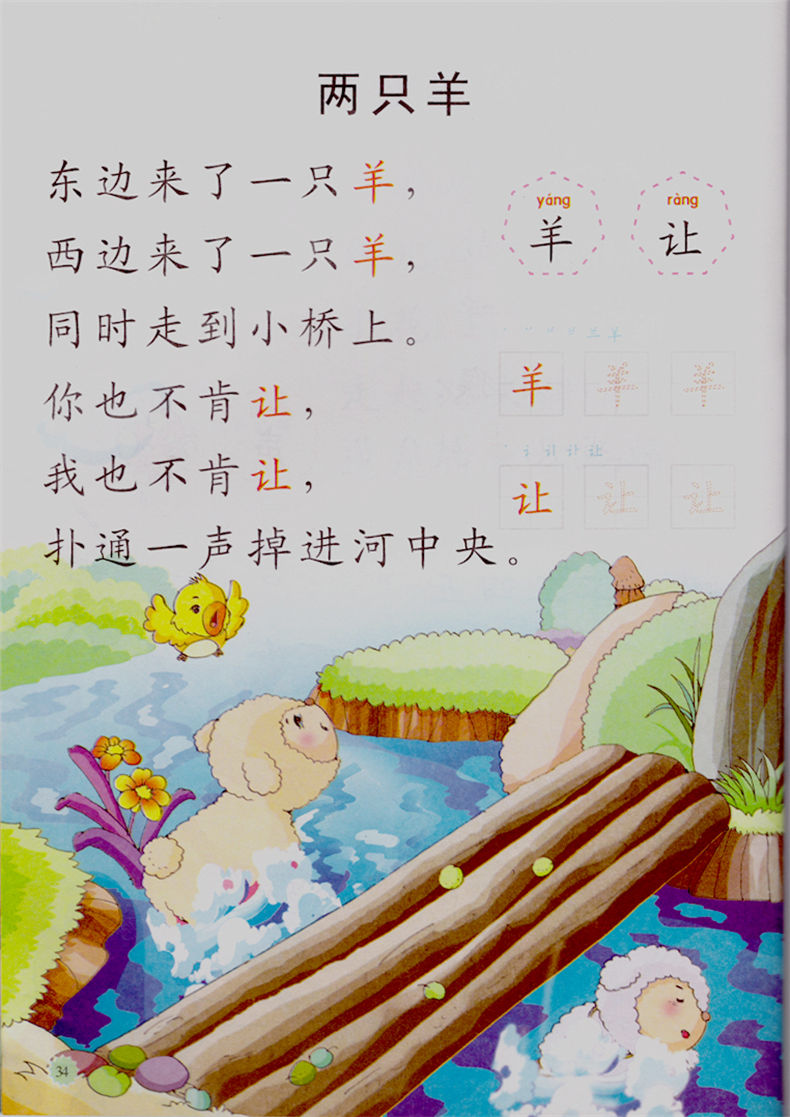 两只羊
东边来了一只羊，
西边来了一只羊，
同时走到小桥上。
你也不肯让，
我也不肯让，
扑通一声掉进河中央。
yáng
羊
ràng
让
羊 羊 羊
让 让 让
34